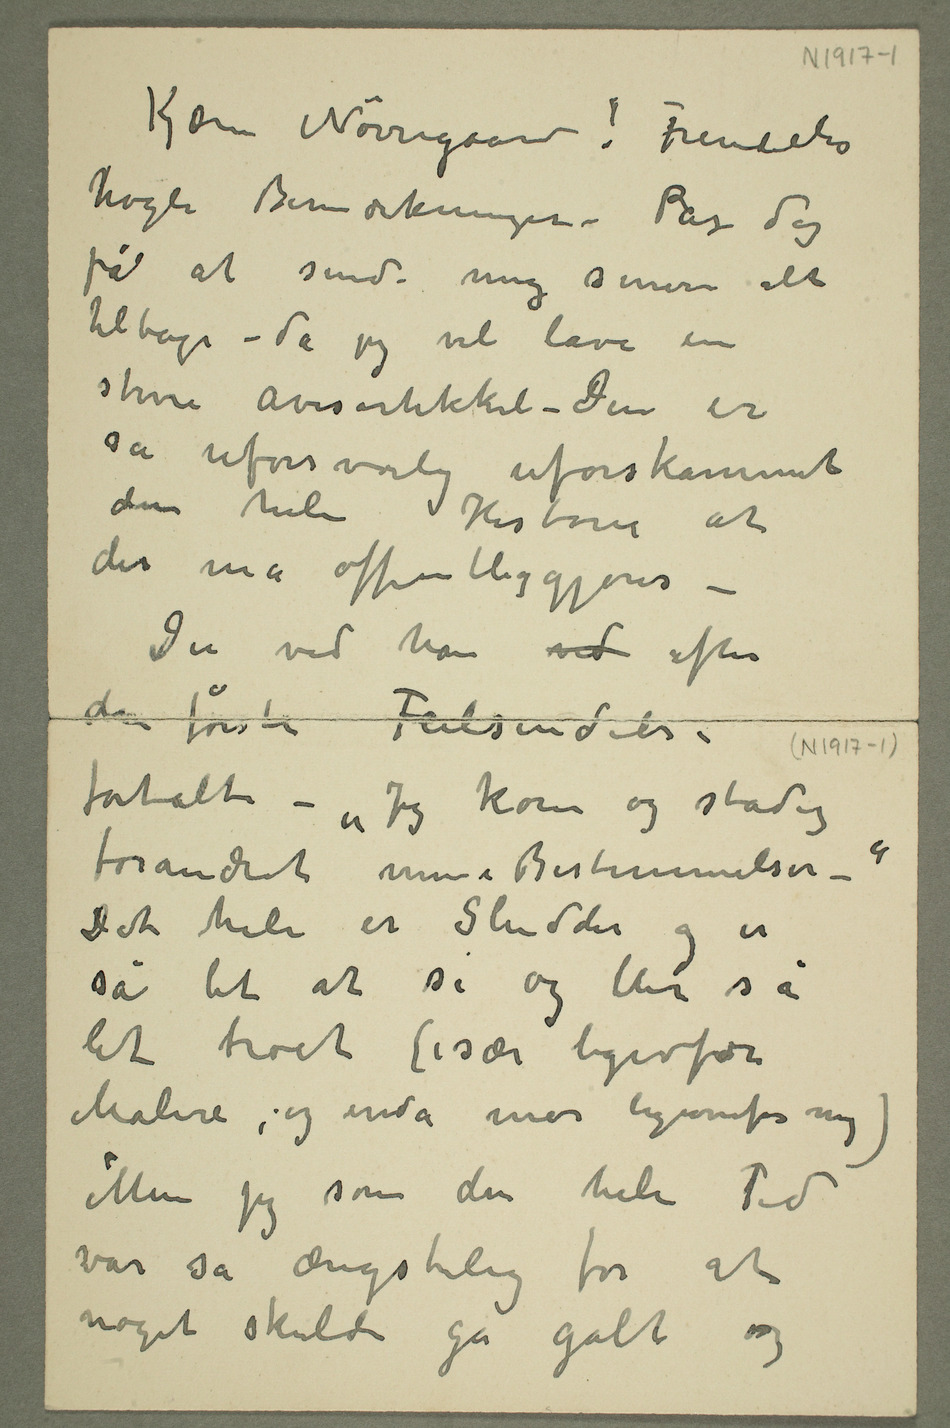 N1917-1
Kjære Nørregaard! Fremdeles
nogle Bemærkninger – Pas dig
på at sende mig senere alt
tilbage – da jeg vil lave en
større avisartikkel – Den er
så uforsvarlig uforskammet
den hele Historie at
den må offentliggjøres –
Du ved han ved efter
den første Feilsendelse
fortalte – „Jeg kom og stadig
forandret mine Bestemmelser – "
Det hele er Sludder og er
så let at si og blir så
let troet (især ligeoverfor
Malere, og enda mer ligeoverfor mig)
Men jeg som den hele Tid
var så ængstelig for at
noget skulde gå galt og
(N1917-1)